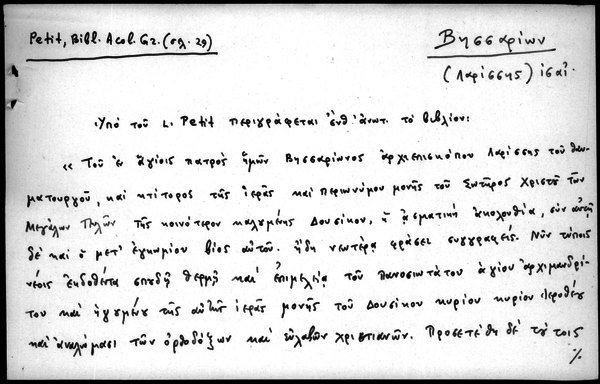 Petit, Bibl. Acol. Gr. (σελ. 29)
Βησσαρίων
(Λαρίσσης)
Ὑπὸ τοῦ L. Petit περιγράφεται ἐνθ' ἀνωτ. τὸ βιβλίον:
« Τοῦ ἐν ἁγίοις πατρὸς ἡμῶν Βησσαρίωνος ἀρχιεπισκόπου Λαρίσσης τοῦ θαυ-
ματουργοῦ, καὶ κτίτορος τῆς ἱερᾶς καὶ περιωνύμου μονῆς τοῦ Σωτῆρος Χριστοῦ τῶν
Μεγάλων Πυλῶν τῆς κοινότερον καλυμένης Δουσίκου, ἡ ᾀσματικὴ ἀκολουθία, σὺν αὐτῇ
δὲ καὶ ὁ μετ' ἐγκωμίου βίος αὐτοῦ. ἤδη νεωτέρᾳ φράσει συγγραφείς. Νῦν τύποις
νέοις ἐκδοθέντα σπουδῇ θερμῇ καὶ ἐπιμελείᾳ τοῦ Πανοσιωτάτου ἁγίου ἀρχιμανδρί-
του καὶ ἡγουμένου τῆς αὐτῆς ἱερᾶς μονῆς τοῦ Δουσίκου κυρίου κυρίου Ἱεροθέου
καὶ ἀναλώμασι τῶν ὀρθοδόξων καὶ εὐλαβῶν χριστιανῶν. Προσετέθη δὲ τούτοις
%